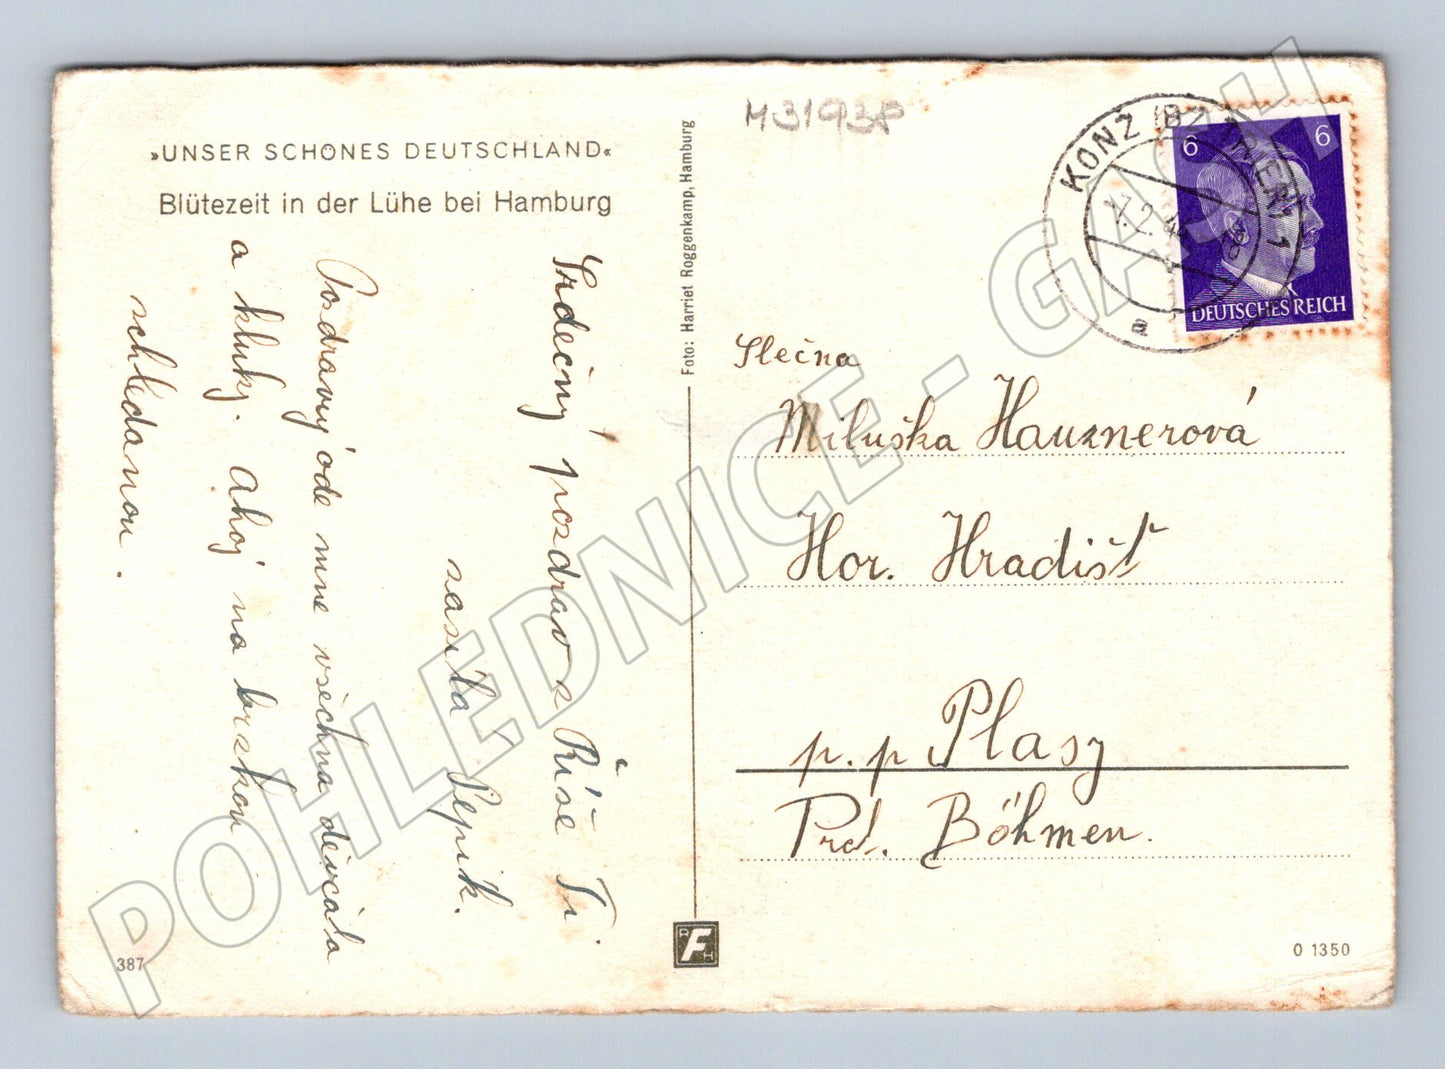 »UNSER SCHÖNES DEUTSCHLAND«
Blütezeit in der Lühe bei Hamburg
Srdečný pozdrav z Říše Ti
zasílá Pepík.
Pozdravuj ode mne všechna děvčata
a kluky. Ahoj na brzkou
schledanou.
387
Foto: Harriet Roggenkamp, Hamburg
H3193P
KONZ (BZ TRIER) 1
7.2.44
a
6 6
DEUTSCHES REICH
Slečna
Miluška Hauznerová
Hor. Hradišť
p. p Plasy
Prot. Böhmen.
R F H
O 1350
POHLEDNICE - GASH